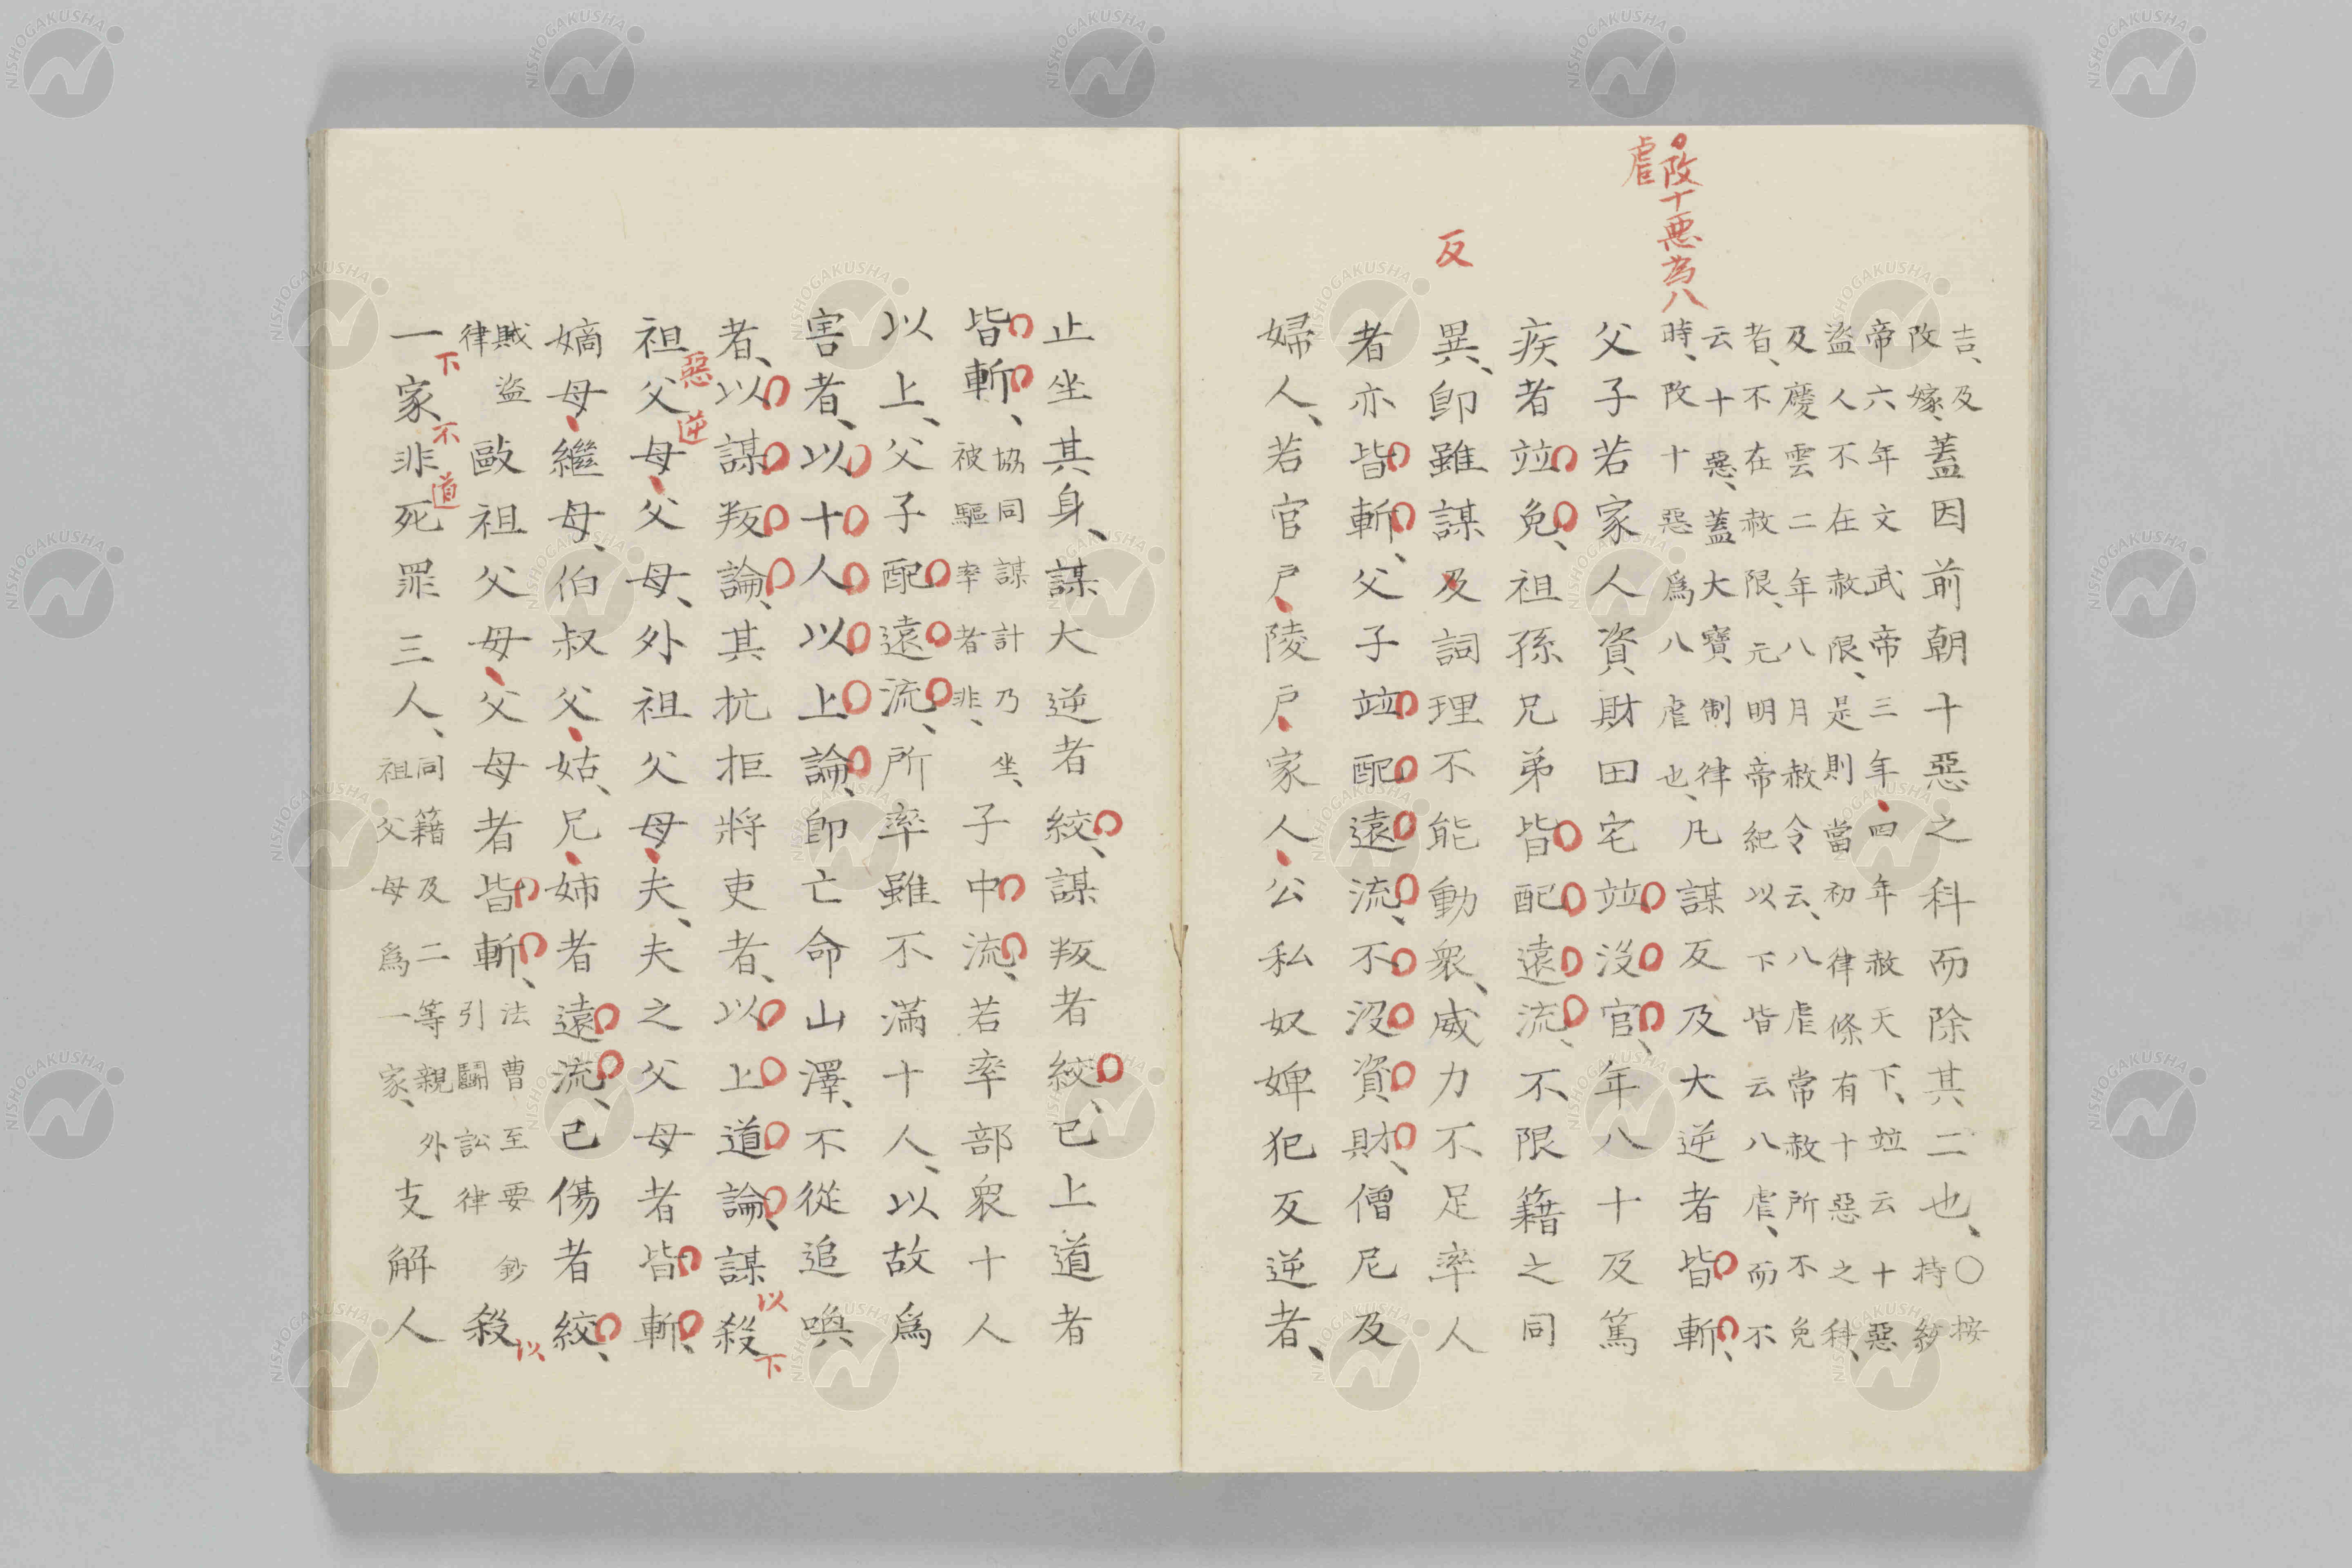 改十惡為八
虐
反
吉、及
改嫁、
蓋因前朝十惡之科而除其二也、
〇按
持統
帝六年文武帝三年、四年赦天下、竝云十惡
盜人不在赦限、是則當初律條有十惡之科、
及慶雲二年八月赦令云、八虐常赦所不免
者、不在赦限、元明帝紀以下皆云八虐、而不
云十惡、蓋大寶制律
時、改十惡爲八虐也、
凡謀反及大逆者皆斬、
父子若家人資財田宅竝沒官、年八十及篤
疾者竝免、祖孫兄弟皆配遠流、不限籍之同
異、卽雖謀及詞理不能動衆、威力不足率人
者亦皆斬、父子竝配遠流、不沒資財、僧尼及
婦人、若官戶、陵戶、家人、公私奴婢犯反逆者、
止坐其身、謀大逆者絞、謀叛者絞、已上道者
皆斬、
協同謀計乃坐、
被驅率者非、
子中流、若率部衆十人
以上、父子配遠流、所率雖不滿十人、以故爲
害者、以十人以上論、卽亡命山澤、不從追喚
者、以謀叛論、其抗拒將吏者、以上道論、謀殺
以下
惡逆
祖父母、父母、外祖父母、夫、夫之父母者皆斬、
嫡母、繼母、伯叔父、姑、兄、姉者遠流、已傷者絞、
賊盜
律
毆祖父母、父母者皆斬、
法曹至要鈔
引鬪訟律
殺
以
下不道
一家非死罪三人、
同籍及二等親外
祖父母爲一家、
支解人
NISHOGAKUSHA